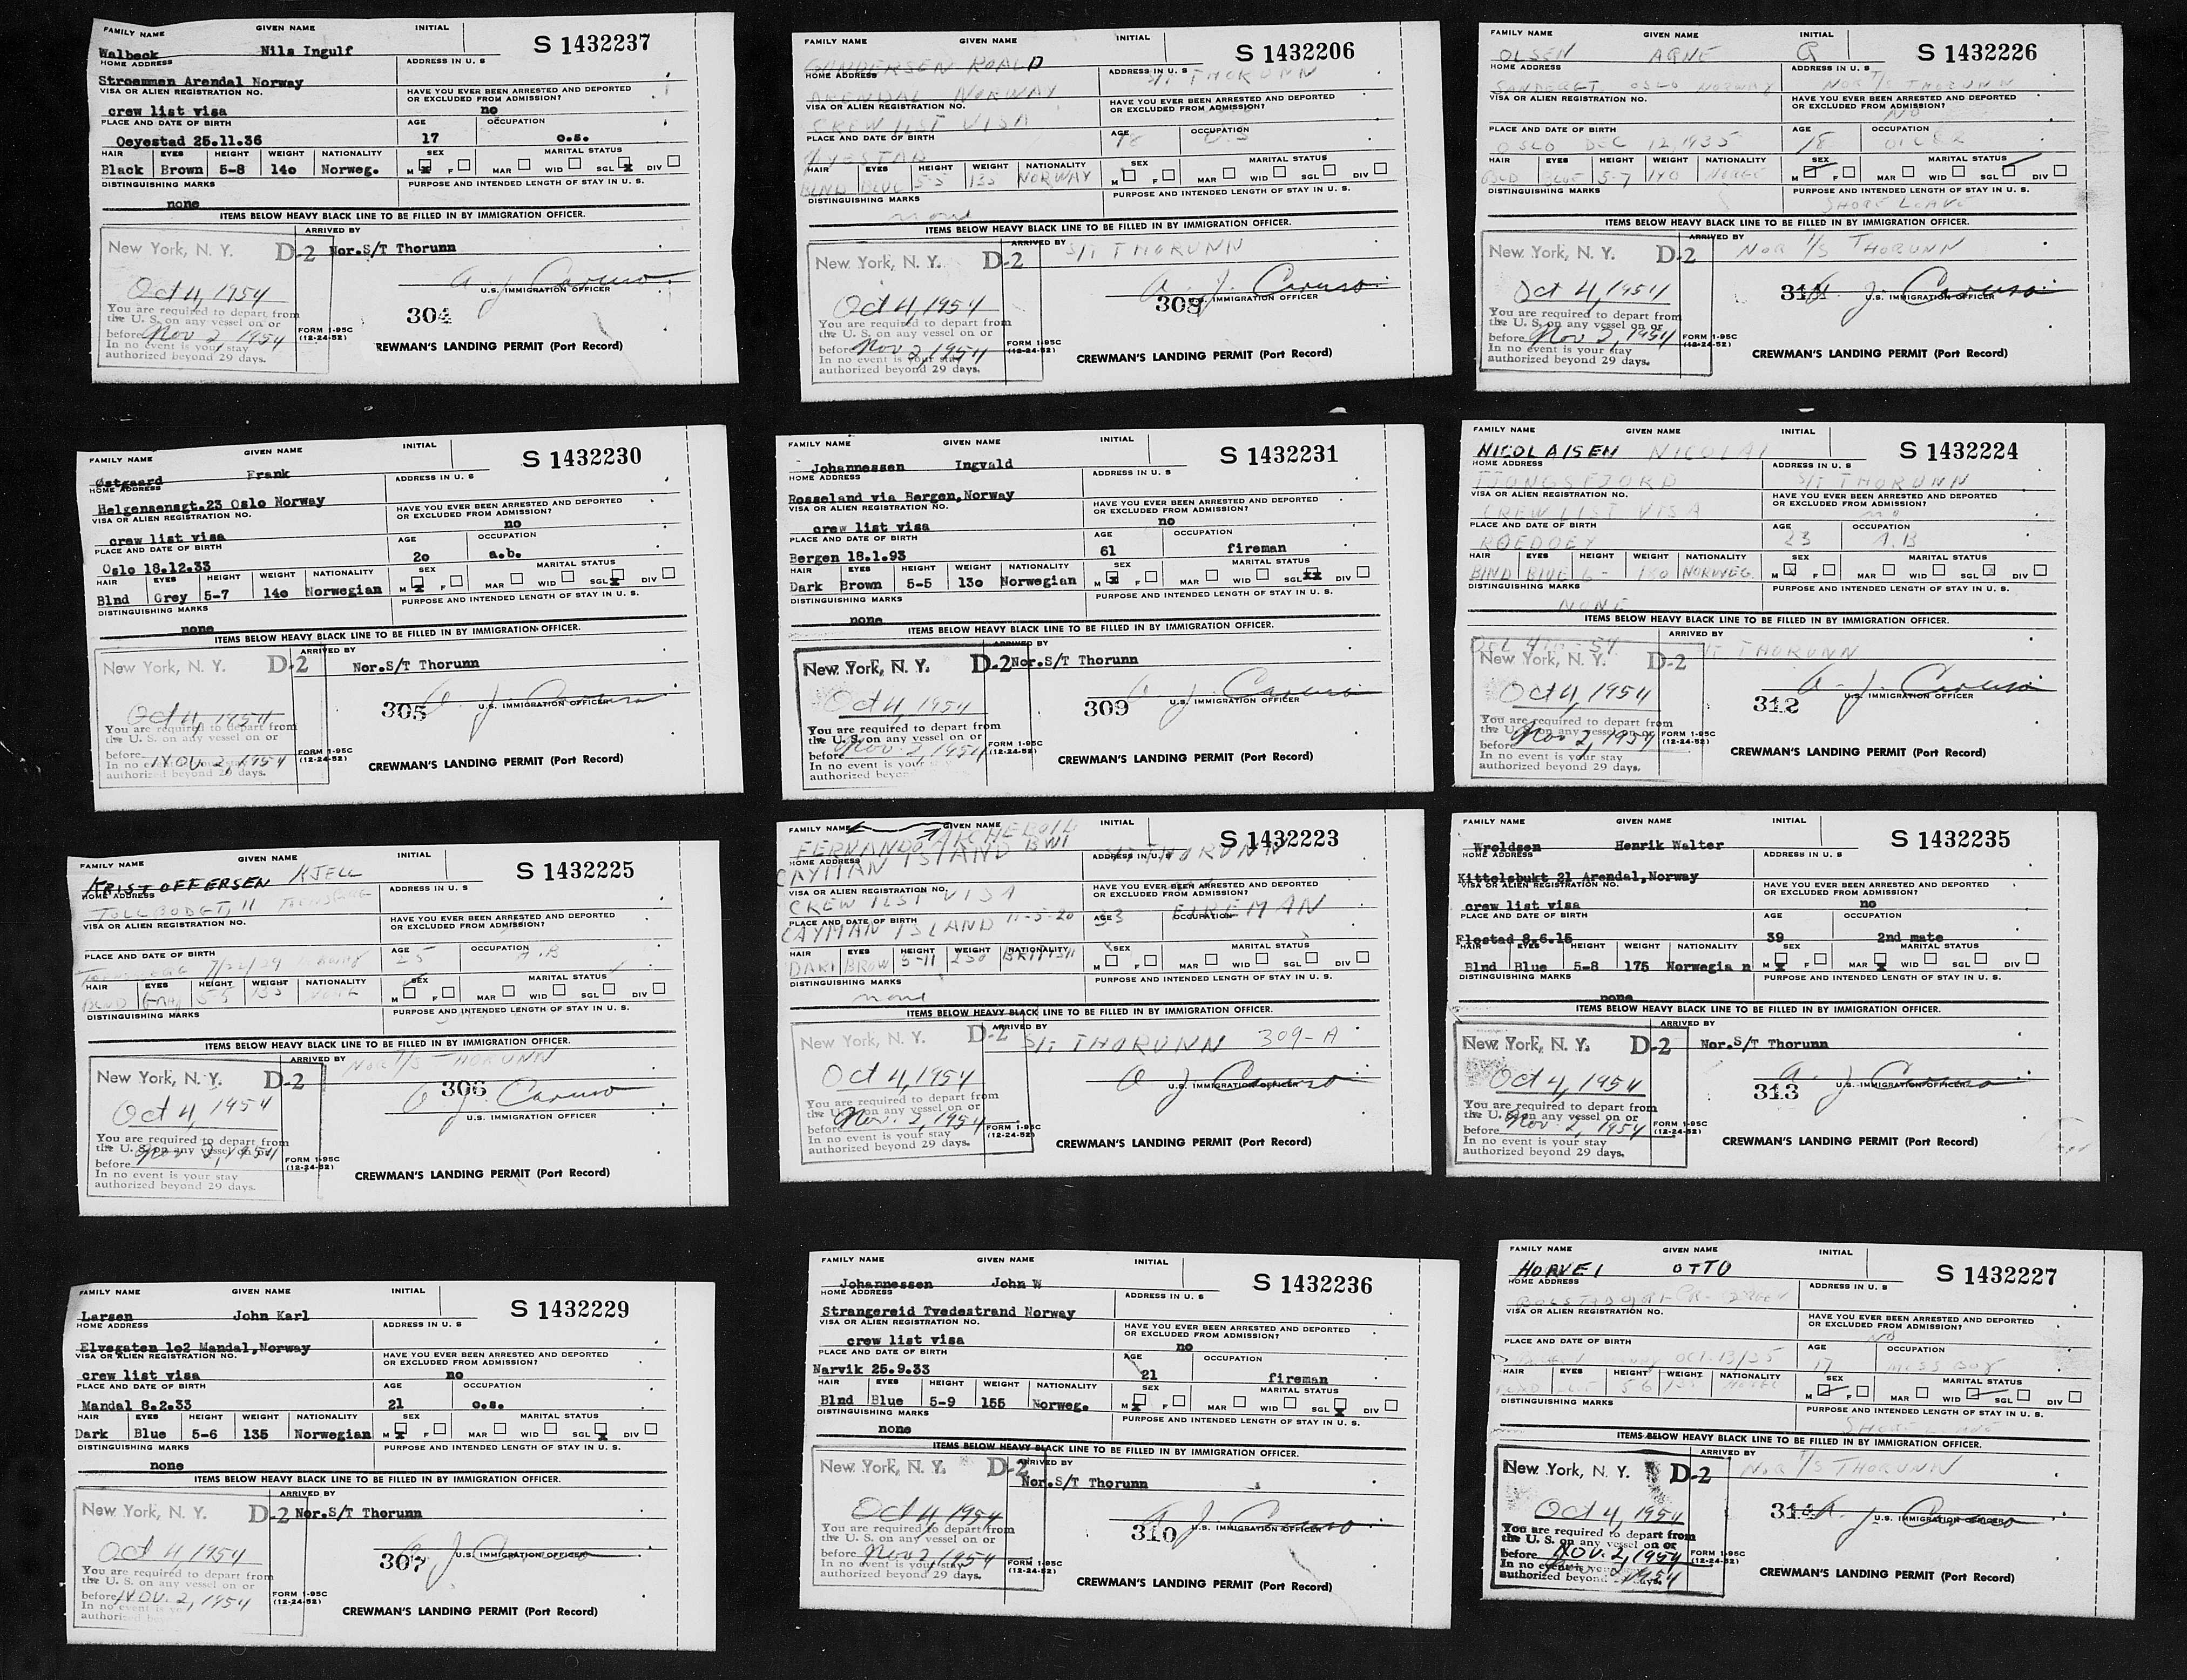 FAMILY NAME GIVEN NAME INITIAL S 1432237
Walbeck Nils Ingulf
HOME ADDRESS ADDRESS IN U. S
Stroemmen Arendal Norway
VISA OR ALIEN REGISTRATION NO. HAVE YOU EVER BEEN ARRESTED AND DEPORTED OR EXCLUDED FROM ADMISSION?
crew list visa no
PLACE AND DATE OF BIRTH AGE OCCUPATION
Oeyestad 25.11.36 17 o.s.
HAIR EYES HEIGHT WEIGHT NATIONALITY SEX MARITAL STATUS
Black Brown 5-8 14o Norweg. M F MAR WID SGL DIV
DISTINGUISHING MARKS PURPOSE AND INTENDED LENGTH OF STAY IN U. S.
none
ITEMS BELOW HEAVY BLACK LINE TO BE FILLED IN BY IMMIGRATION OFFICER.
ARRIVED BY
New York, N. Y. D-2 Nor.S/T Thorunn
Oct 4, 1954 A. J. Caruso
U.S. IMMIGRATION OFFICER
You are required to depart from
the U. S. on any vessel on or 304
before Nov 2, 1954 FORM 1-95C (12-24-52)
In no event is your stay
authorized beyond 29 days.
REWMAN'S LANDING PERMIT (Port Record)
FAMILY NAME GIVEN NAME INITIAL S 1432206
GUNDERSEN ROALD
HOME ADDRESS ADDRESS IN U. S
ARENDAL NORWAY S/T THORUNN
VISA OR ALIEN REGISTRATION NO. HAVE YOU EVER BEEN ARRESTED AND DEPORTED OR EXCLUDED FROM ADMISSION?
CREW LIST VISA
PLACE AND DATE OF BIRTH AGE OCCUPATION
OYESTAD 18 O.S
HAIR EYES HEIGHT WEIGHT NATIONALITY SEX MARITAL STATUS
BLND BLUE 5-5 135 NORWAY M F MAR WID SGL DIV
DISTINGUISHING MARKS PURPOSE AND INTENDED LENGTH OF STAY IN U. S.
none
ITEMS BELOW HEAVY BLACK LINE TO BE FILLED IN BY IMMIGRATION OFFICER.
ARRIVED BY
New York, N. Y. D-2 S/T THORUNN
Oct 4, 1954 A. J. Caruso
308 U.S. IMMIGRATION OFFICER
You are required to depart from
the U. S. on any vessel on or
before Nov 2, 1954 FORM 1-95C (12-24-52)
In no event is your stay
authorized beyond 29 days.
CREWMAN'S LANDING PERMIT (Port Record)
FAMILY NAME GIVEN NAME INITIAL S 1432226
OLSEN ARNE
HOME ADDRESS ADDRESS IN U. S
OSLO NORWAY NOR T/S THORUNN
VISA OR ALIEN REGISTRATION NO. HAVE YOU EVER BEEN ARRESTED AND DEPORTED OR EXCLUDED FROM ADMISSION?
NO
PLACE AND DATE OF BIRTH AGE OCCUPATION
OSLO DEC 12, 1935 18 OILER
HAIR EYES HEIGHT WEIGHT NATIONALITY SEX MARITAL STATUS
BLD BLUE 5-7 140 NORGE M F MAR WID SGL DIV
DISTINGUISHING MARKS PURPOSE AND INTENDED LENGTH OF STAY IN U. S.
SHORE LEAVE
ITEMS BELOW HEAVY BLACK LINE TO BE FILLED IN BY IMMIGRATION OFFICER.
ARRIVED BY
New York, N. Y. D-2 NOR T/S THORUNN
Oct 4, 1954 A. J. Caruso
U.S. IMMIGRATION OFFICER
You are required to depart from
the U. S. on any vessel on or
before Nov 2, 1954 FORM 1-95C (12-24-52)
In no event is your stay
authorized beyond 29 days.
CREWMAN'S LANDING PERMIT (Port Record)
FAMILY NAME GIVEN NAME INITIAL S 1432230
Østgaard Frank
HOME ADDRESS ADDRESS IN U. S
Helgensensgt.23 Oslo Norway
VISA OR ALIEN REGISTRATION NO. HAVE YOU EVER BEEN ARRESTED AND DEPORTED OR EXCLUDED FROM ADMISSION?
crew list visa no
PLACE AND DATE OF BIRTH AGE OCCUPATION
Oslo 18.12.33 2o a.b.
HAIR EYES HEIGHT WEIGHT NATIONALITY SEX MARITAL STATUS
Blnd Grey 5-7 14o Norwegian M F MAR WID SGL DIV
DISTINGUISHING MARKS PURPOSE AND INTENDED LENGTH OF STAY IN U. S.
none
ITEMS BELOW HEAVY BLACK LINE TO BE FILLED IN BY IMMIGRATION OFFICER.
ARRIVED BY
New York, N. Y. D-2 Nor.S/T Thorunn
Oct 4, 1954 305 A. J. Caruso
U.S. IMMIGRATION OFFICER
You are required to depart from
the U. S. on any vessel on or
before NOV. 2, 1954 FORM 1-95C (12-24-52)
In no event is your stay
authorized beyond 29 days.
CREWMAN'S LANDING PERMIT (Port Record)
FAMILY NAME GIVEN NAME INITIAL S 1432231
Johannessen Ingvald
HOME ADDRESS ADDRESS IN U. S
Rosseland via Bergen,Norway
VISA OR ALIEN REGISTRATION NO. HAVE YOU EVER BEEN ARRESTED AND DEPORTED OR EXCLUDED FROM ADMISSION?
crew list visa no
PLACE AND DATE OF BIRTH AGE OCCUPATION
Bergen 18.1.93 61 fireman
HAIR EYES HEIGHT WEIGHT NATIONALITY SEX MARITAL STATUS
Dark Brown 5-5 13o Norwegian M F MAR WID SGL DIV
DISTINGUISHING MARKS PURPOSE AND INTENDED LENGTH OF STAY IN U. S.
none
ITEMS BELOW HEAVY BLACK LINE TO BE FILLED IN BY IMMIGRATION OFFICER.
ARRIVED BY
New York, N. Y. D-2 Nor.S/T Thorunn
Oct 4, 1954 309 A. J. Caruso
U.S. IMMIGRATION OFFICER
You are required to depart from
the U. S. on any vessel on or
before Nov. 2, 1954 FORM 1-95C (12-24-52)
In no event is your stay
authorized beyon
CREWMAN'S LANDING PERMIT (Port Record)
FAMILY NAME GIVEN NAME INITIAL S 1432224
NICOLAISEN NICOLAI
HOME ADDRESS ADDRESS IN U. S
TJONGSFJORD S/T THORUNN
VISA OR ALIEN REGISTRATION NO. HAVE YOU EVER BEEN ARRESTED AND DEPORTED OR EXCLUDED FROM ADMISSION?
CREW LIST VISA no
PLACE AND DATE OF BIRTH AGE OCCUPATION
ROEDOEY 23 A.B
HAIR EYES HEIGHT WEIGHT NATIONALITY SEX MARITAL STATUS
BLND BLUE 6- NORWEG. M F MAR WID SGL DIV
DISTINGUISHING MARKS PURPOSE AND INTENDED LENGTH OF STAY IN U. S.
NONE
ITEMS BELOW HEAVY BLACK LINE TO BE FILLED IN BY IMMIGRATION OFFICER.
ARRIVED BY
New York, N. Y. D-2 S/T THORUNN
Oct 4, 1954 312 A. J. Caruso
U.S. IMMIGRATION OFFICER
You are required to depart from
the U. S. on any vessel on or
before Nov 2, 1954 FORM 1-95C (12-24-52)
In no event is your stay
authorized beyond 29 days.
CREWMAN'S LANDING PERMIT (Port Record)
FAMILY NAME GIVEN NAME INITIAL S 1432225
KRISTOFFERSEN KJELL
HOME ADDRESS ADDRESS IN U. S
TOLLBODGT, 11 TOENSBERG
VISA OR ALIEN REGISTRATION NO. HAVE YOU EVER BEEN ARRESTED AND DEPORTED OR EXCLUDED FROM ADMISSION?
PLACE AND DATE OF BIRTH AGE OCCUPATION
7/22/29 25 A.B
HAIR EYES HEIGHT WEIGHT NATIONALITY SEX MARITAL STATUS
BLND GRAY 5-5 135 M F MAR WID SGL DIV
DISTINGUISHING MARKS PURPOSE AND INTENDED LENGTH OF STAY IN U. S.
ITEMS BELOW HEAVY BLACK LINE TO BE FILLED IN BY IMMIGRATION OFFICER.
ARRIVED BY
New York, N. Y. D-2 NOR T/S THORUNN
Oct 4, 1954 306 A. J. Caruso
U.S. IMMIGRATION OFFICER
You are required to depart from
the U. S. on any vessel on or
before Nov 2, 1954 FORM 1-95C (12-24-52)
In no event is your stay
authorized beyond 29 days.
CREWMAN'S LANDING PERMIT (Port Record)
FAMILY NAME GIVEN NAME INITIAL S 1432223
FERNANDO ARCHEBOLD
HOME ADDRESS ADDRESS IN U. S
CAYMAN ISLAND BWI S/T THORUNN
VISA OR ALIEN REGISTRATION NO. HAVE YOU EVER BEEN ARRESTED AND DEPORTED OR EXCLUDED FROM ADMISSION?
CREW LIST VISA
PLACE AND DATE OF BIRTH AGE OCCUPATION
CAYMAN ISLAND 11-5-20 33 FIREMAN
HAIR EYES HEIGHT WEIGHT NATIONALITY SEX MARITAL STATUS
DARK BROW 5-11 230 BRITTISH M F MAR WID SGL DIV
DISTINGUISHING MARKS PURPOSE AND INTENDED LENGTH OF STAY IN U. S.
none
ITEMS BELOW HEAVY BLACK LINE TO BE FILLED IN BY IMMIGRATION OFFICER.
ARRIVED BY
New York, N. Y. D-2 S/T THORUNN 309-A
Oct 4, 1954 A J Caruso
U.S. IMMIGRATION OFFICER
You are required to depart from
the U. S. on any vessel on or
before Nov. 2, 1954 FORM 1-95C (12-24-52)
In no event is your stay
authorized beyond 29 days.
CREWMAN'S LANDING PERMIT (Port Record)
FAMILY NAME GIVEN NAME INITIAL S 1432235
Wroldsen Henrik Walter
HOME ADDRESS ADDRESS IN U. S
Kittelsbukt 21 Arendal,Norway
VISA OR ALIEN REGISTRATION NO. HAVE YOU EVER BEEN ARRESTED AND DEPORTED OR EXCLUDED FROM ADMISSION?
crew list visa no
PLACE AND DATE OF BIRTH AGE OCCUPATION
Flostad 8.6.15 39 2nd mate
HAIR EYES HEIGHT WEIGHT NATIONALITY SEX MARITAL STATUS
Blnd Blue 5-8 175 Norwegia n M F MAR WID SGL DIV
DISTINGUISHING MARKS PURPOSE AND INTENDED LENGTH OF STAY IN U. S.
none
ITEMS BELOW HEAVY BLACK LINE TO BE FILLED IN BY IMMIGRATION OFFICER.
ARRIVED BY
New York, N. Y. D-2 Nor.S/T Thorunn
Oct 4, 1954 313 A. J. Caruso
U.S. IMMIGRATION OFFICER
You are required to depart from
the U. S. on any vessel on or
before Nov. 2, 1954 FORM 1-95C (12-24-52)
In no event is your stay
authorized beyond 29 days.
CREWMAN'S LANDING PERMIT (Port Record)
FAMILY NAME GIVEN NAME INITIAL S 1432229
Larsen John Karl
HOME ADDRESS ADDRESS IN U. S
Elvegaten 1o2 Mandal,Norway
VISA OR ALIEN REGISTRATION NO. HAVE YOU EVER BEEN ARRESTED AND DEPORTED OR EXCLUDED FROM ADMISSION?
crew list visa no
PLACE AND DATE OF BIRTH AGE OCCUPATION
Mandal 8.2.33 21 o.s.
HAIR EYES HEIGHT WEIGHT NATIONALITY SEX MARITAL STATUS
Dark Blue 5-6 135 Norwegian M F MAR WID SGL DIV
DISTINGUISHING MARKS PURPOSE AND INTENDED LENGTH OF STAY IN U. S.
none
ITEMS BELOW HEAVY BLACK LINE TO BE FILLED IN BY IMMIGRATION OFFICER.
ARRIVED BY
New York, N. Y. D-2 Nor.S/T Thorunn
Oct 4, 1954 307 A. J. Caruso
U.S. IMMIGRATION OFFICER
You are required to depart from
the U. S. on any vessel on or
before NOV. 2, 1954 FORM 1-95C (12-24-52)
In no event is
authorized
CREWMAN'S LANDING PERMIT (Port Record)
FAMILY NAME GIVEN NAME INITIAL S 1432236
Johannessen John W
HOME ADDRESS ADDRESS IN U. S
Strangereid Tvedestrand Norway
VISA OR ALIEN REGISTRATION NO. HAVE YOU EVER BEEN ARRESTED AND DEPORTED OR EXCLUDED FROM ADMISSION?
crew list visa no
PLACE AND DATE OF BIRTH AGE OCCUPATION
Narvik 25.9.33 21 fireman
HAIR EYES HEIGHT WEIGHT NATIONALITY SEX MARITAL STATUS
Blnd Blue 5-9 155 Norweg. M F MAR WID SGL DIV
DISTINGUISHING MARKS PURPOSE AND INTENDED LENGTH OF STAY IN U. S.
none
ITEMS BELOW HEAVY BLACK LINE TO BE FILLED IN BY IMMIGRATION OFFICER.
ARRIVED BY
New York, N. Y. D-2 Nor.S/T Thorunn
Oct 4, 1954 310 A J Caruso
U.S. IMMIGRATION OFFICER
You are required to depart from
the U. S. on any vessel on or
before Nov 2, 1954 FORM 1-95C (12-24-52)
In no event is your stay
authorized beyond 29 days.
CREWMAN'S LANDING PERMIT (Port Record)
FAMILY NAME GIVEN NAME INITIAL S 1432227
HORVEI OTTO
HOME ADDRESS ADDRESS IN U. S
VISA OR ALIEN REGISTRATION NO. HAVE YOU EVER BEEN ARRESTED AND DEPORTED OR EXCLUDED FROM ADMISSION?
NO
PLACE AND DATE OF BIRTH AGE OCCUPATION
OCT. 13/35 17 MESS BOY
HAIR EYES HEIGHT WEIGHT NATIONALITY SEX MARITAL STATUS
5 6 M F MAR WID SGL DIV
DISTINGUISHING MARKS PURPOSE AND INTENDED LENGTH OF STAY IN U. S.
ITEMS BELOW HEAVY BLACK LINE TO BE FILLED IN BY IMMIGRATION OFFICER.
ARRIVED BY
New York, N. Y. D-2 NOR T/S THORUNN
Oct 4, 1954 A. J. Caruso
U.S. IMMIGRATION OFFICER
You are required to depart from
the U. S. on any vessel on or
before NOV. 2, 1954 FORM 1-95C (12-24-52)
In no event is
authorized beyond days.
CREWMAN'S LANDING PERMIT (Port Record)